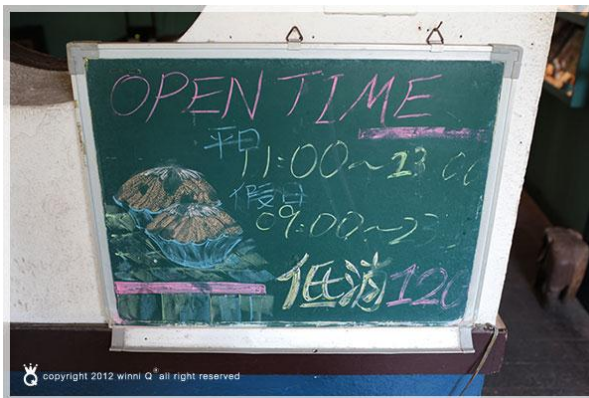 OPEN TIME
平日
11:00~23:00
假日
09:00~23
低消120
copyright 2012 winni Q® all right reserved